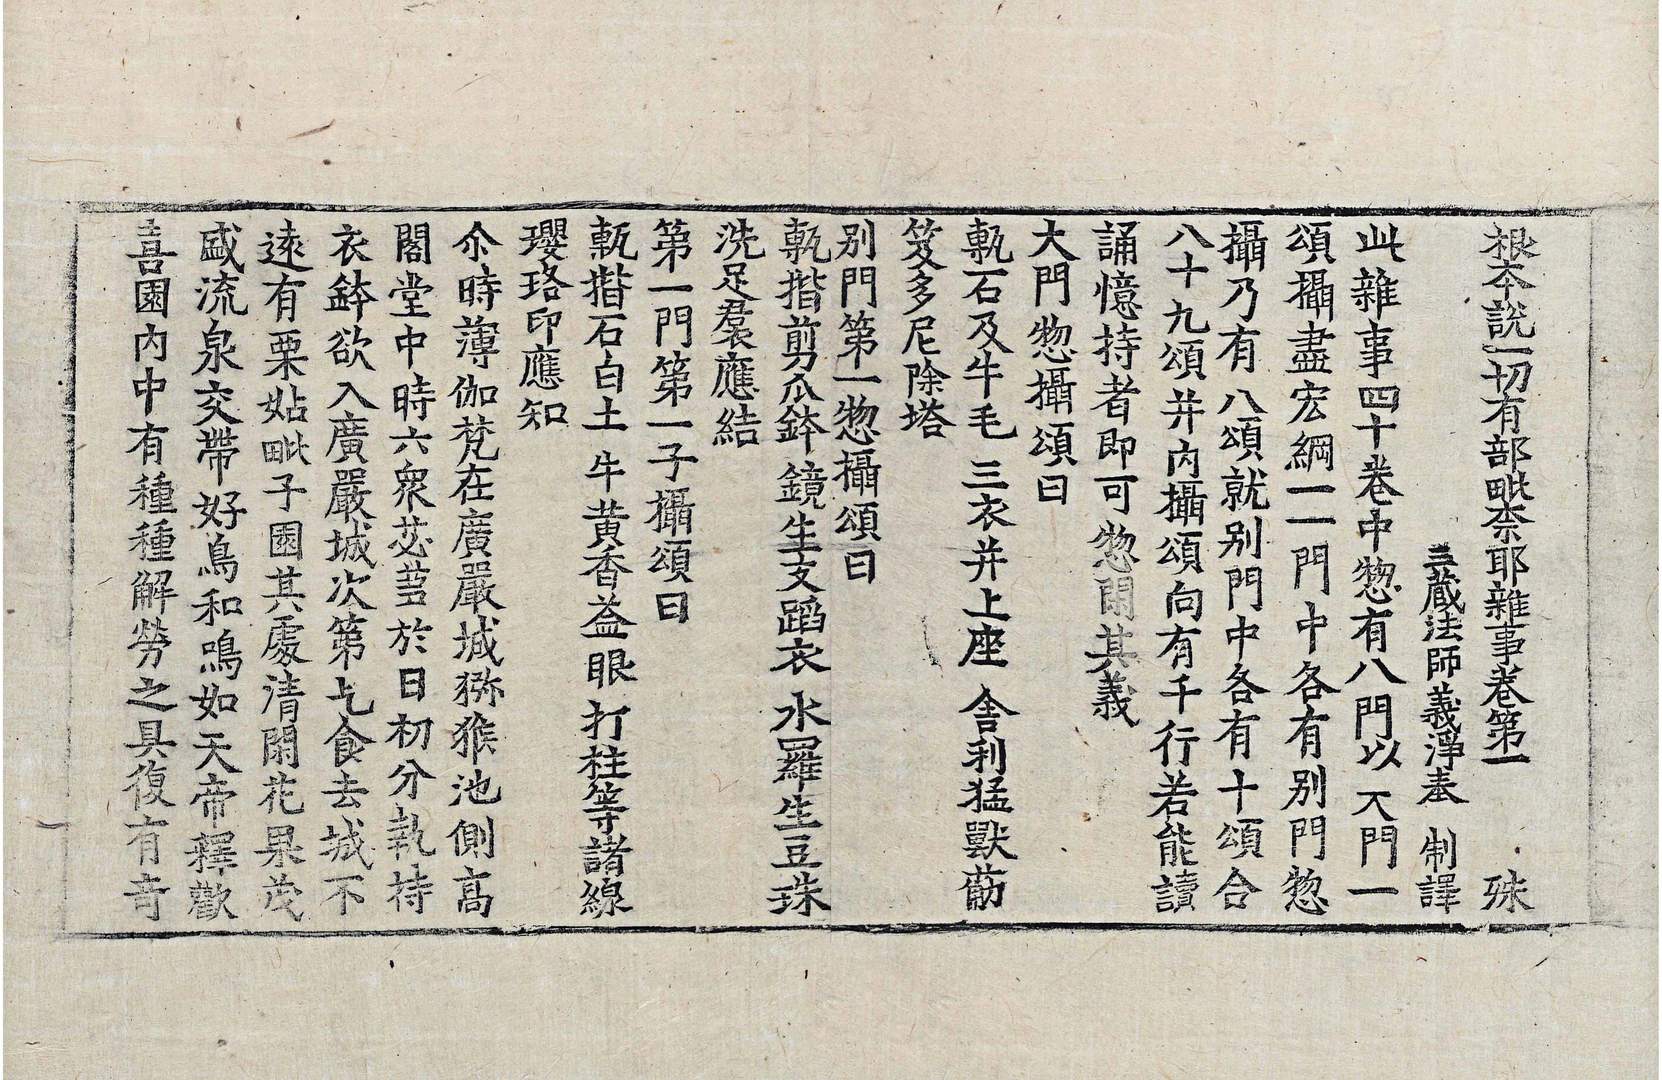 根本說一切有部毗奈耶雜事卷第一 殊
三藏法師義淨奉 制譯
此雜事四十卷中惣有八門以一大門一
頌攝盡宏綱一一門中各有別門惣
攝乃有八頌就別門中各有十頌合
八十九頌并內攝頌向有千行若能讀
誦憶持者即可惣閑其義
大門惣攝頌曰
甎石及牛毛 三衣并上座 舍利猛獸筋
笈多尼除塔
別門第一惣攝頌曰
甎揩剪爪鉢 鏡生支蹈衣 水羅生豆珠
洗足裙應結
第一門第一子攝頌曰
甎揩石白土 牛黃香益眼 打柱等諸線
瓔珞印應知
尒時薄伽梵在廣嚴城獼猴池側高
閣堂中時六衆苾芻於日初分執持
衣鉢欲入廣嚴城次第乞食去城不
遠有栗姑毗子園其處清閑花果茂
盛流泉交帶好鳥和鳴如天帝釋歡
喜園內中有種種解勞之具復有奇